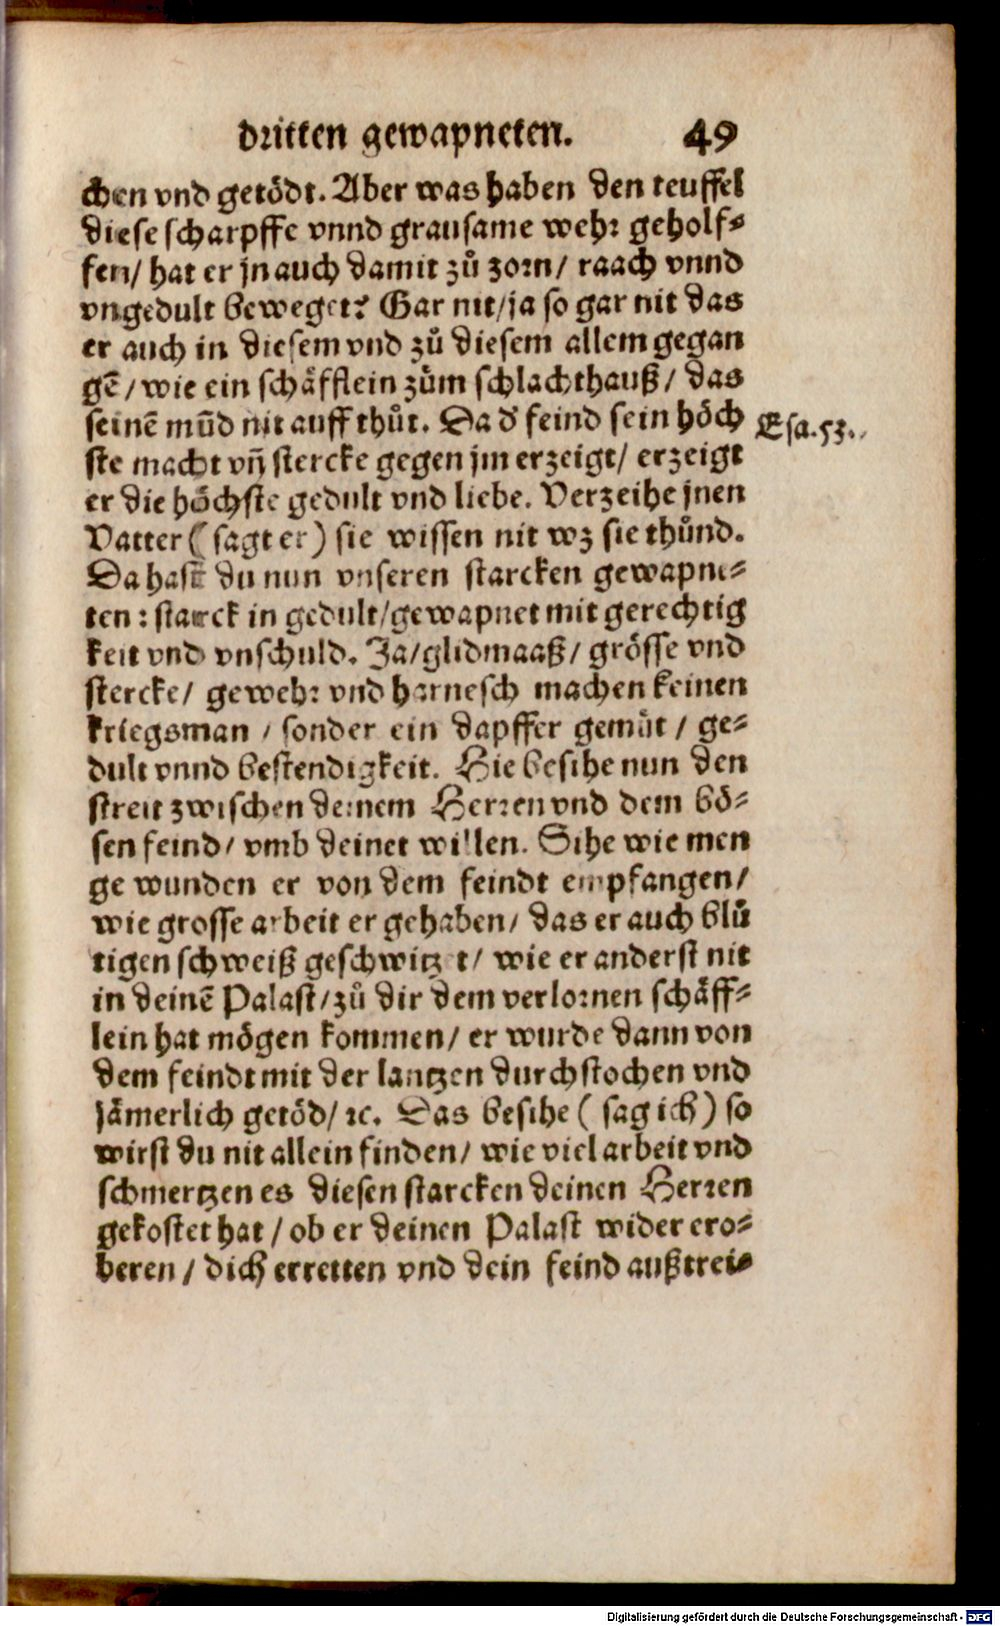 dritten gewapneten. 49
chen vnd getödt. Aber was haben den teuffel
diese scharpffe vnnd grausame wehr geholf-
fen/ hat er jn auch damit zů zorn/ raach vnnd
vngedult beweget? Gar nit/ja so gar nit das
er auch in diesem vnd zů diesem allem gegan
gẽ/wie ein schäfflein zům schlachthauß/ das
seinẽ mũd nit auff thůt. Da d' feind sein höch
Esa.53.
ste macht vñ stercke gegen jm erzeigt/ erzeigt
er die höchste gedult vnd liebe. Verzeihe jnen
Vatter (sagt er) sie wissen nit wz sie thůnd.
Da hast du nun vnseren starcken gewapne-
ten: starck in gedult/gewapnet mit gerechtig
keit vnd vnschuld. Ja/glidmaaß/ grösse vnd
stercke/ gewehr vnd harnesch machen keinen
kriegsman / sonder ein dapffer gemüt / ge-
dult vnnd bestendigkeit. Hie besihe nun den
streit zwischen deinem Herren vnd dem bö-
sen feind/ vmb deinet willen. Sihe wie men
ge wunden er von dem feindt empfangen/
wie grosse arbeit er gehaben/ das er auch blů
tigen schweiß geschwitzet/ wie er anderst nit
in deinẽ Palast/zů dir dem verlornen schäff-
lein hat mögen kommen/ er wurde dann von
dem feindt mit der lantzen durchstochen vnd
jämerlich getöd/ ꝛc. Das besihe (sag ich) so
wirst du nit allein finden/ wie viel arbeit vnd
schmertzen es diesen starcken deinen Herren
gekostet hat / ob er deinen Palast wider ero-
beren / dich erretten vnd dein feind außtrei-
Digitalisierung gefördert durch die Deutsche Forschungsgemeinschaft - DFG